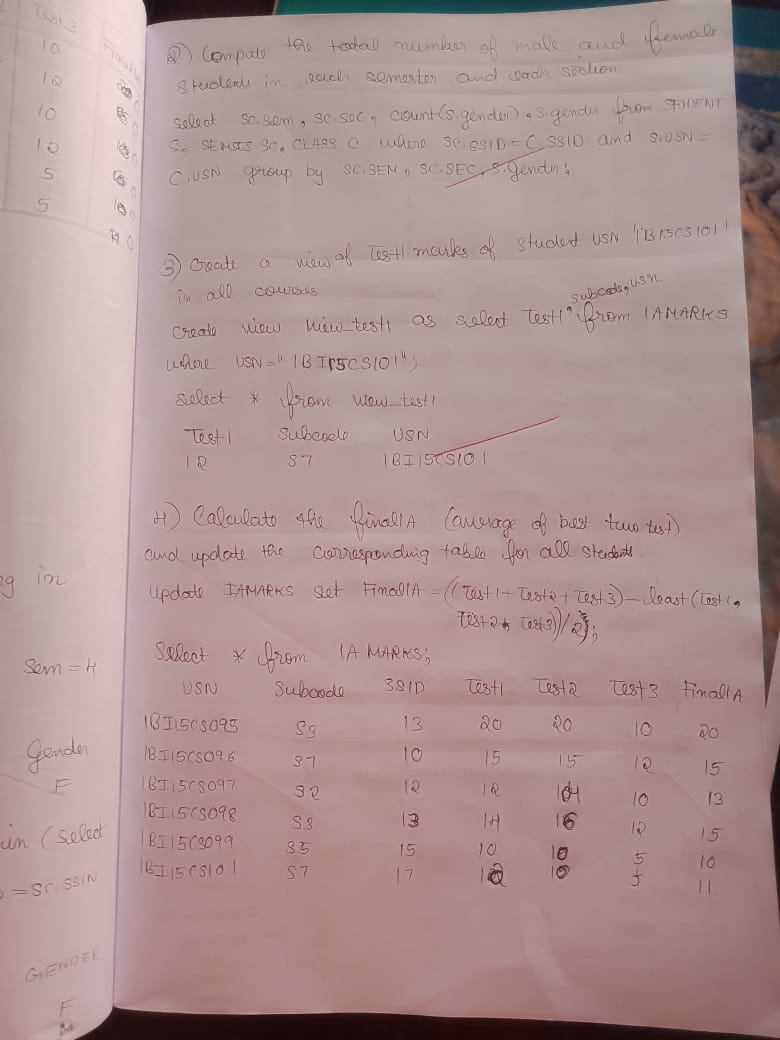 Test 3 Final IA
10
12
10
12
5
5
ng in
Sem = 4
Gender
F
in (select
= SC.SSIN
GENDER
F
M
2) Compute the total number of male and female
students in each semester and each section
select sc.sem, sc.soc, count(s.gender), s.gender from STUDENT
S, SEMSIS SC, CLASS C where SC.SSID = C.SSID and S.USN =
C.USN group by SC.SEM, SC.SEC, S.Gender;
3) Create a view of Test1 marks of student USN '1BI15CS101'
in all courses
subcode, usn
create view view_test1 as select Test1, from IAMARKS
where USN = "1BI15CS101";
select * from view_test1
Test1 Subcode USN
12 S7 1BI15CS101
4) Calculate the finalIA (average of best two test)
and update the corresponding table for all students.
Update IAMARKS set FinalIA = ((Test1 + Test2 + Test3) - least(Test1,
Test2, Test3))/2);
Select * from IAMARKS;
USN Subcode SSID Test1 Test2 Test3 FinalIA
1BI15CS095 S3 13 20 20 10 20
1BI15CS096 S7 10 15 15 12 15
1BI15CS097 S2 12 12 14 10 13
1BI15CS098 S3 13 14 16 12 15
1BI15CS099 S5 15 10 10 5 10
1BI15CS101 S7 17 12 10 5 11